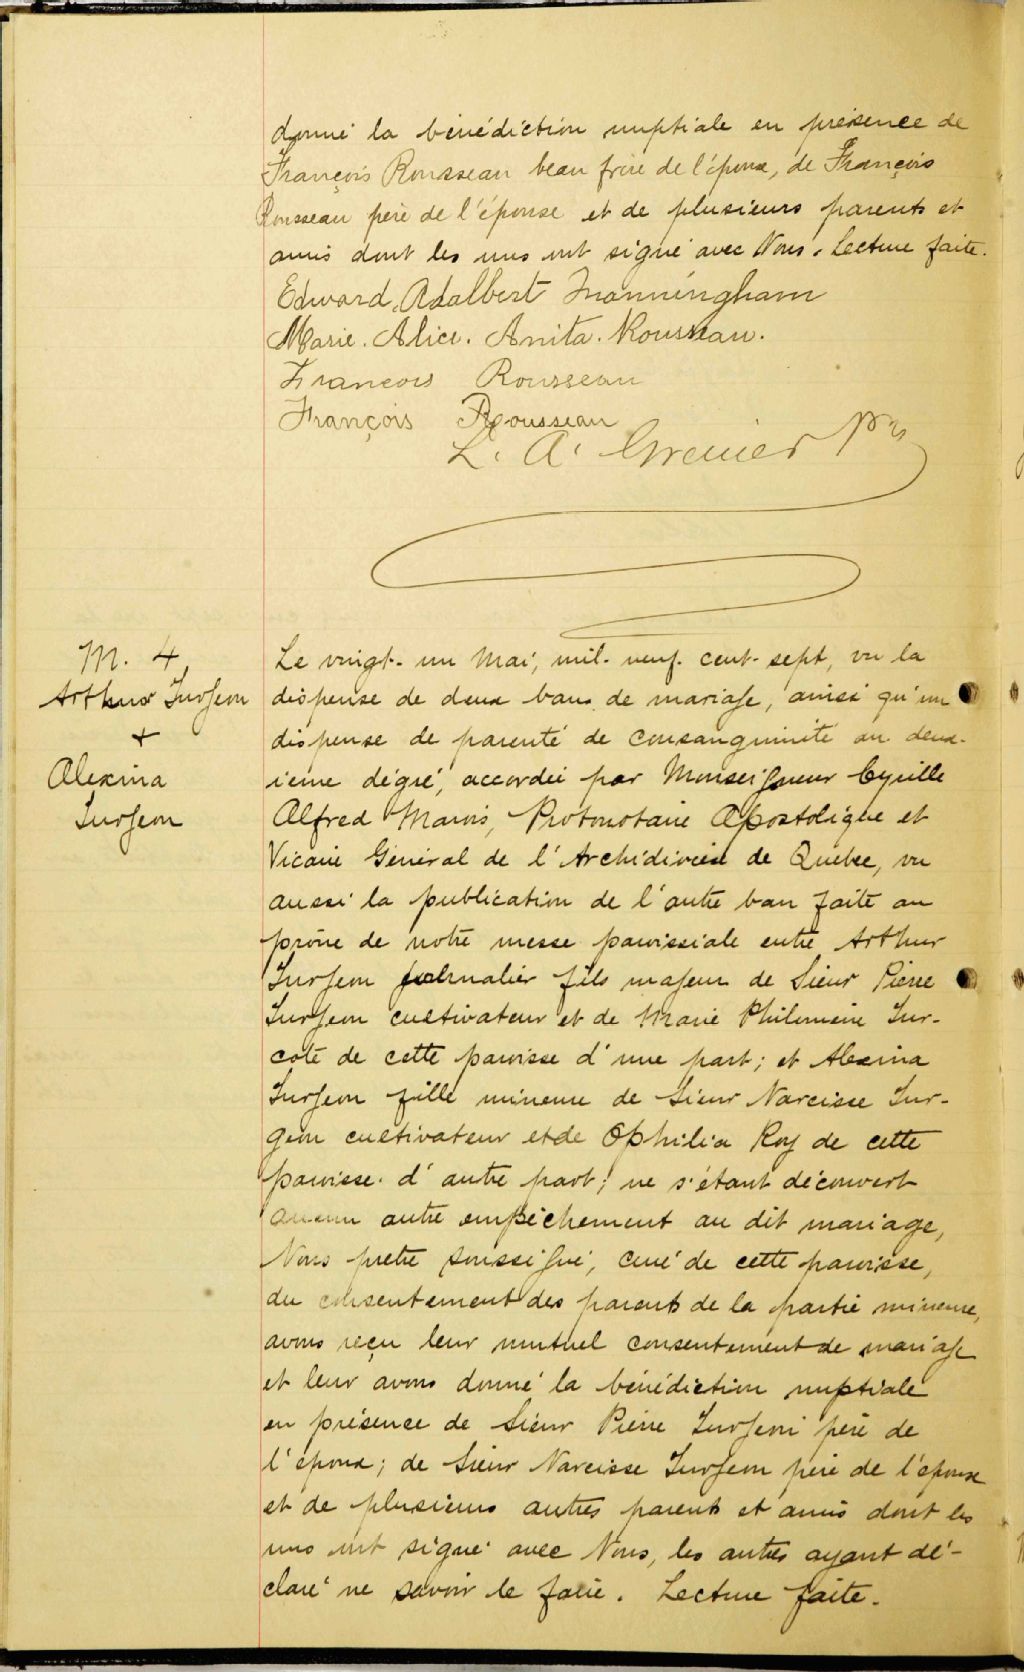 donné la bénédiction nuptiale en présence de
François Rousseau beau frère de l'époux, de François
Rousseau père de l'épouse et de plusieurs parents et
amis dont les uns ont signé avec Nous. Lecture faite.
Edward Adalbert Manningham
Marie. Alice. Anita. Rousseau.
Francois Rousseau
François Rousseau
L. A. Grenier Ptre
M. 4
Arthur Surgeon
+
Alexina
Surgeon
Le vingt-un Mai, mil-neuf-cent-sept, vu la
dispense de deux bans de mariage, ainsi qu'une
dispense de parenté de consanguinité au deux-
ième dégré, accordée par Monseigneur Cyrille
Alfred Marois, Protonotaire Apostolique et
Vicaire Général de l'Archidiocèse de Québec, vu
aussi la publication de l'autre ban faite au
prône de notre messe paroissiale entre Arthur
Surgeon journalier fils majeur de Sieur Pierre
Surgeon cultivateur et de Marie Philomène Tur-
cote de cette paroisse d'une part; et Alexina
Surgeon fille mineure de Sieur Narcisse Sur-
geon cultivateur et de Ophilia Roy de cette
paroisse. d'autre part; ne s'étant découvert
aucun autre empêchement au dit mariage,
Nous prêtre soussigné, curé de cette paroisse,
du consentement des parents de la partie mineure,
avons reçu leur mutuel consentement de mariage
et leur avons donné la bénédiction nuptiale
en présence de Sieur Pierre Surgeon père de
l'époux; de Sieur Narcisse Surgeon père de l'épouse
et de plusieurs autres parents et amis dont les
uns ont signé avec Nous, les autres ayant dé-
claré ne savoir le faire. Lecture faite.